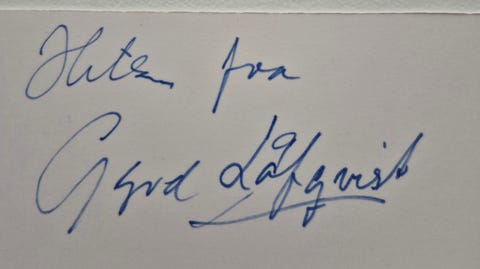 Hilsen fra
Gyrd Løfqvist